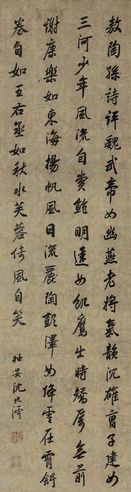 敖陶孫詩評魏武帝如幽燕老將氣韻沉雄曹子建如
三河少年風流自賞鮑明遠如飢鷹矯無前
謝康樂如東海揚帆風日流麗陶彭澤如降雲在霄舒
卷自如王右丞如秋水芙蓉倚風自笑
沈兆